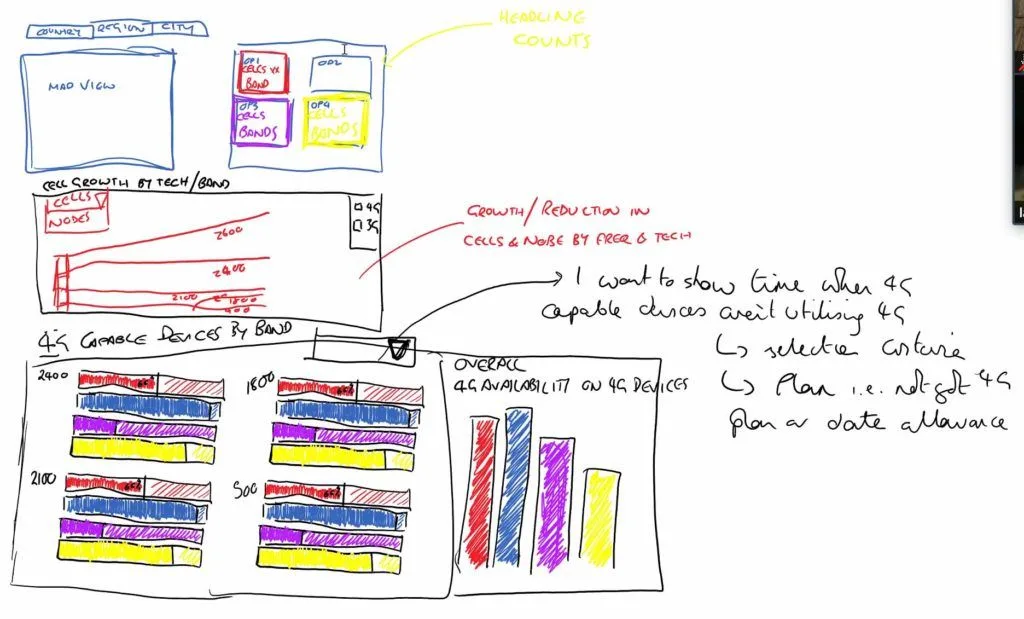 HEADLINE
COUNTS
COUNTRY REGION CITY
MAP VIEW
OP1
CELLS
BAND
OP2
OP3
CELLS
BANDS
OP4
CELLS
BANDS
CELL GROWTH BY TECH/BAND
CELLS
NODES
4G
3G
2600
2400
2100
1800
900
GROWTH/REDUCTION IN
CELLS & NODE BY FREQ & TECH
I want to show time when 4G
capable devices aren't utilising 4G
selection criteria
Plan i.e. not got 4G
plan or data allowance
4G CAPABLE DEVICES BY BAND
2400
1800
2100
OVERALL
4G AVAILABILITY ON 4G DEVICES